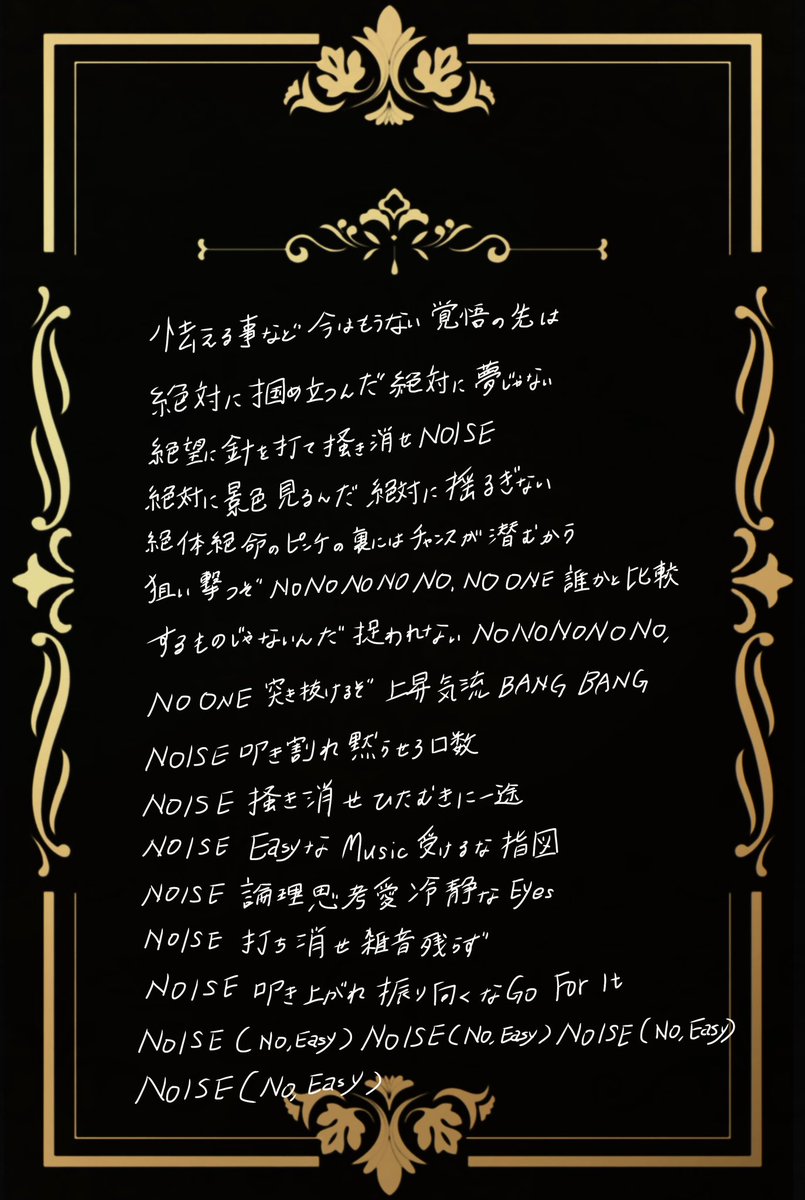 怯える事など今はもうない覚悟の先は
絶対に掴め立つんだ絶対に夢じゃない
絶望に針を打て掻き消せNOISE
絶対に景色見るんだ絶対に揺るぎない
絶体絶命のピンチの裏にはチャンスが潜むから
狙い撃つぞNONONONONO,NO ONE誰かと比較
するものじゃないんだ捉われないNONONONONO,
NO ONE突き抜けるぞ上昇気流BANG BANG
NOISE叩き割れ黙らせろ口数
NOISE掻き消せひたむきに一途
NOISE EasyなMusic受けるな指図
NOISE論理思考愛冷静なEyes
NOISE打ち消せ雑音残らず
NOISE叩き上がれ振り向くなGo For It
NOISE(No,Easy)NOISE(No,Easy)NOISE(No,Easy)
NOISE(No,Easy)